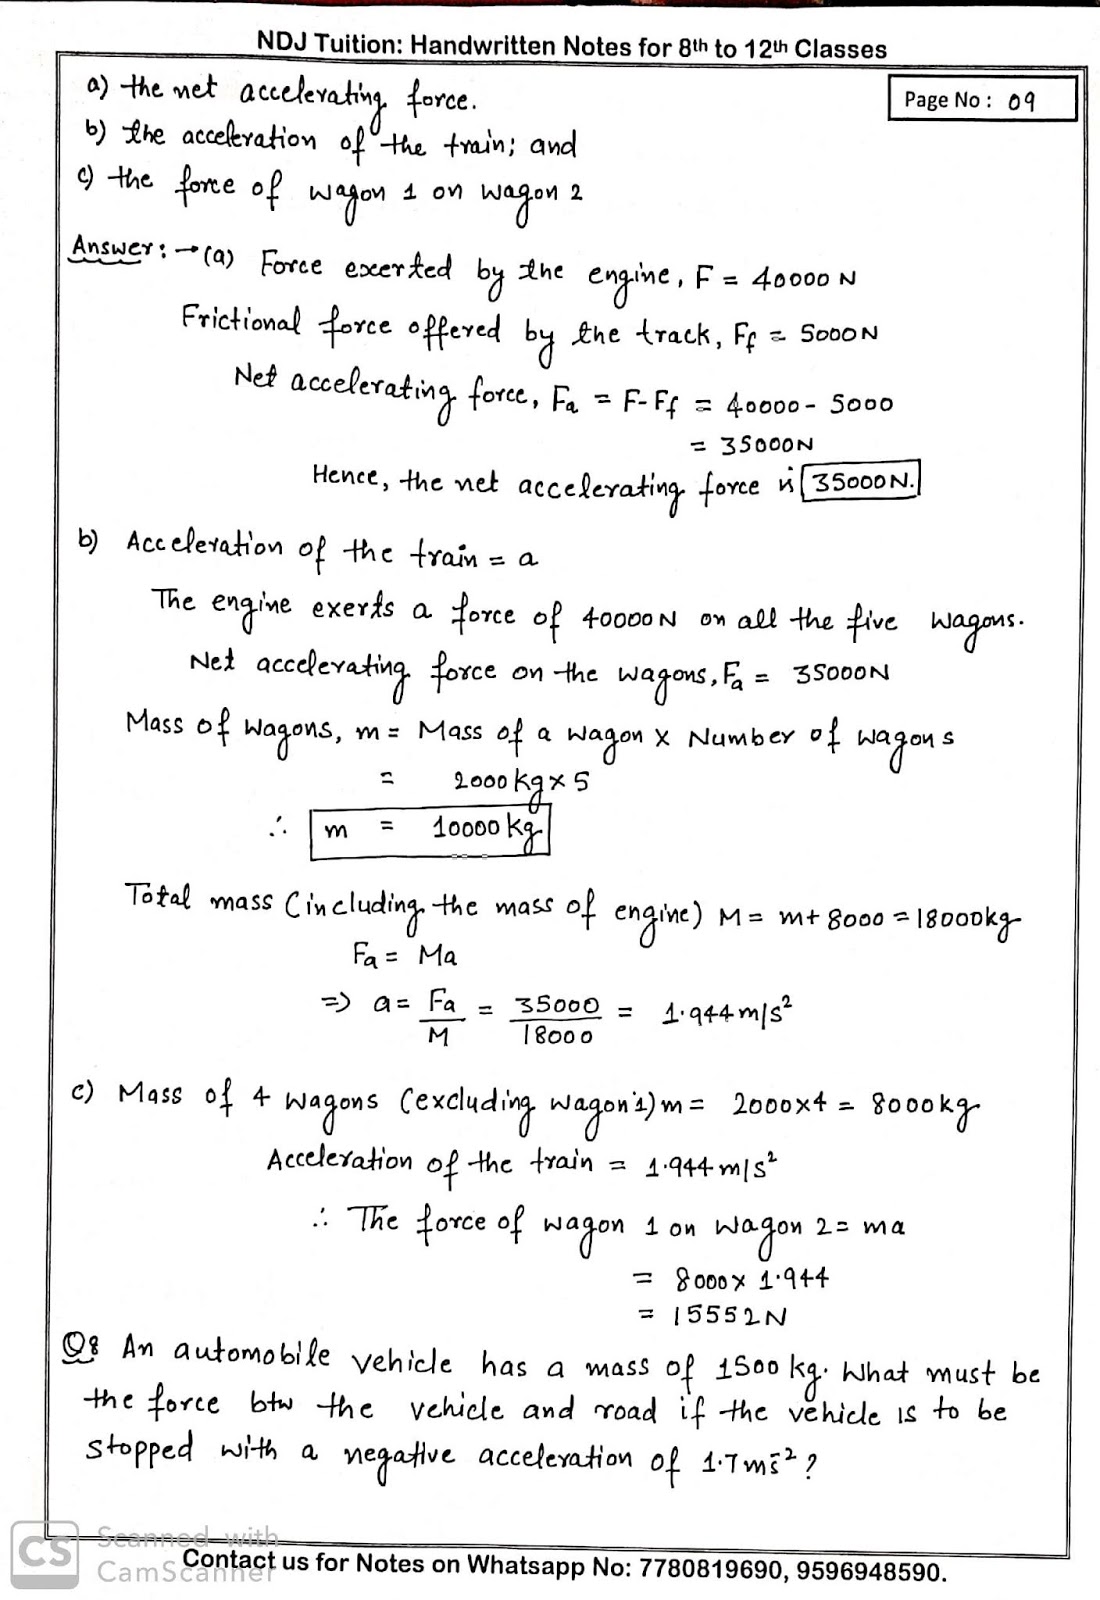 NDJ Tuition: Handwritten Notes for 8th to 12th Classes
Page No : 09
a) the net accelerating force.
b) the acceleration of the train; and
c) the force of wagon 1 on wagon 2
Answer: → (a) Force exerted by the engine, F = 40000 N
Frictional force offered by the track, Ff = 5000N
Net accelerating force, Fa = F-Ff = 40000 - 5000
= 35000N
Hence, the net accelerating force is 35000N.
b) Acceleration of the train = a
The engine exerts a force of 40000N on all the five wagons.
Net accelerating force on the wagons, Fa = 35000N
Mass of wagons, m = Mass of a wagon x Number of wagons
= 2000kg x 5
∴ m = 10000 kg
Total mass (including the mass of engine) M = m+ 8000 = 18000kg
Fa = Ma
=> a = Fa/M = 35000/18000 = 1.944 m/s²
c) Mass of 4 wagons (excluding wagon 1) m = 2000x4 = 8000kg
Acceleration of the train = 1.944 m/s²
∴ The force of wagon 1 on wagon 2 = ma
= 8000 x 1.944
= 15552N
Q8 An automobile vehicle has a mass of 1500 kg. What must be
the force btw the vehicle and road if the vehicle is to be
stopped with a negative acceleration of 1.7 ms⁻²?
CS Scanned with
CamScanner
Contact us for Notes on Whatsapp No: 7780819690, 9596948590.